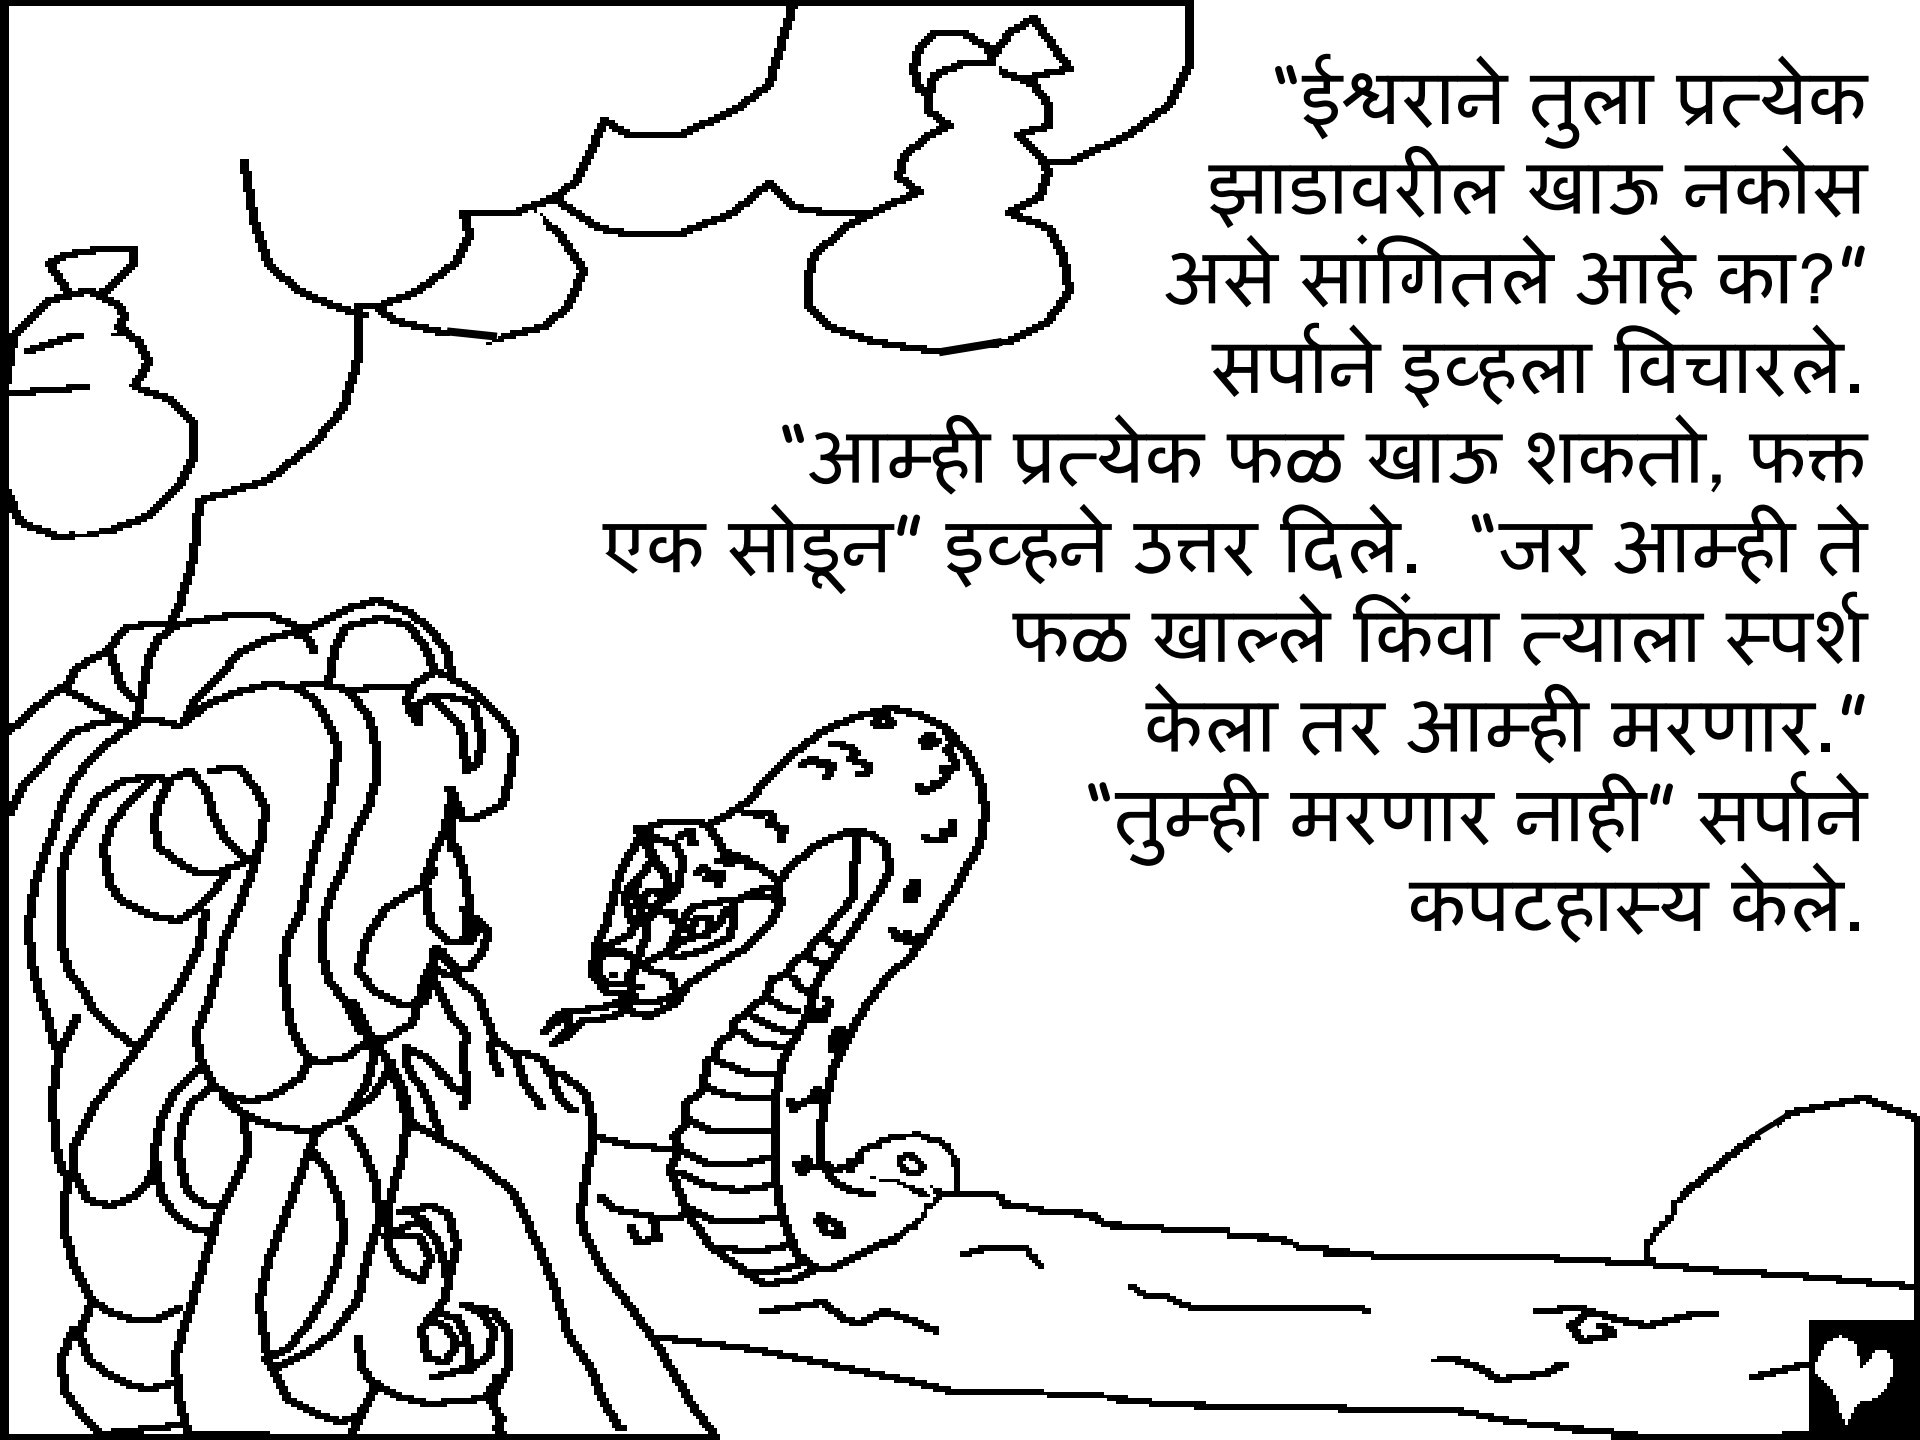 “ईश्वराने तुला प्रत्येक
झाडावरील खाऊ नकोस
असे सांगितले आहे का?”
सर्पाने इव्हला विचारले.
“आम्ही प्रत्येक फळ खाऊ शकतो, फक्त
एक सोडून” इव्हने उत्तर दिले. “जर आम्ही ते
फळ खाल्ले किंवा त्याला स्पर्श
केला तर आम्ही मरणार.”
“तुम्ही मरणार नाही” सर्पाने
कपटहास्य केले.